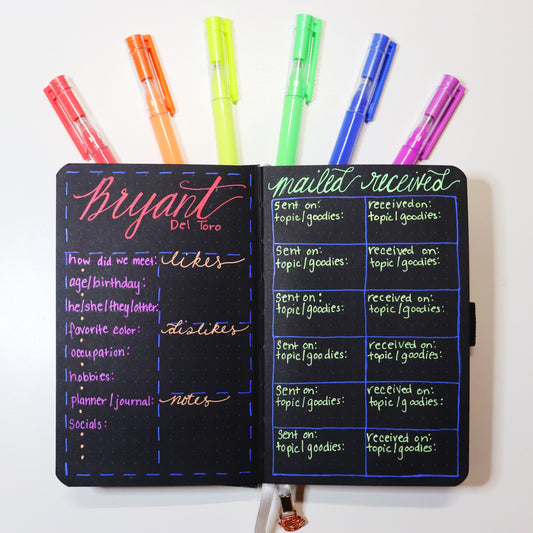 Bryant
Del Toro
how did we meet:
age/birthday:
he/she/they/other:
favorite color:
occupation:
hobbies:
planner/journal:
socials:
likes
dislikes
notes
mailed received
sent on:
topic/goodies:
received on:
topic/goodies:
sent on:
topic/goodies:
received on:
topic/goodies:
sent on:
topic/goodies:
received on:
topic/goodies:
sent on:
topic/goodies:
received on:
topic/goodies:
sent on:
topic/goodies:
received on:
topic/goodies:
sent on:
topic/goodies:
received on:
topic/goodies: